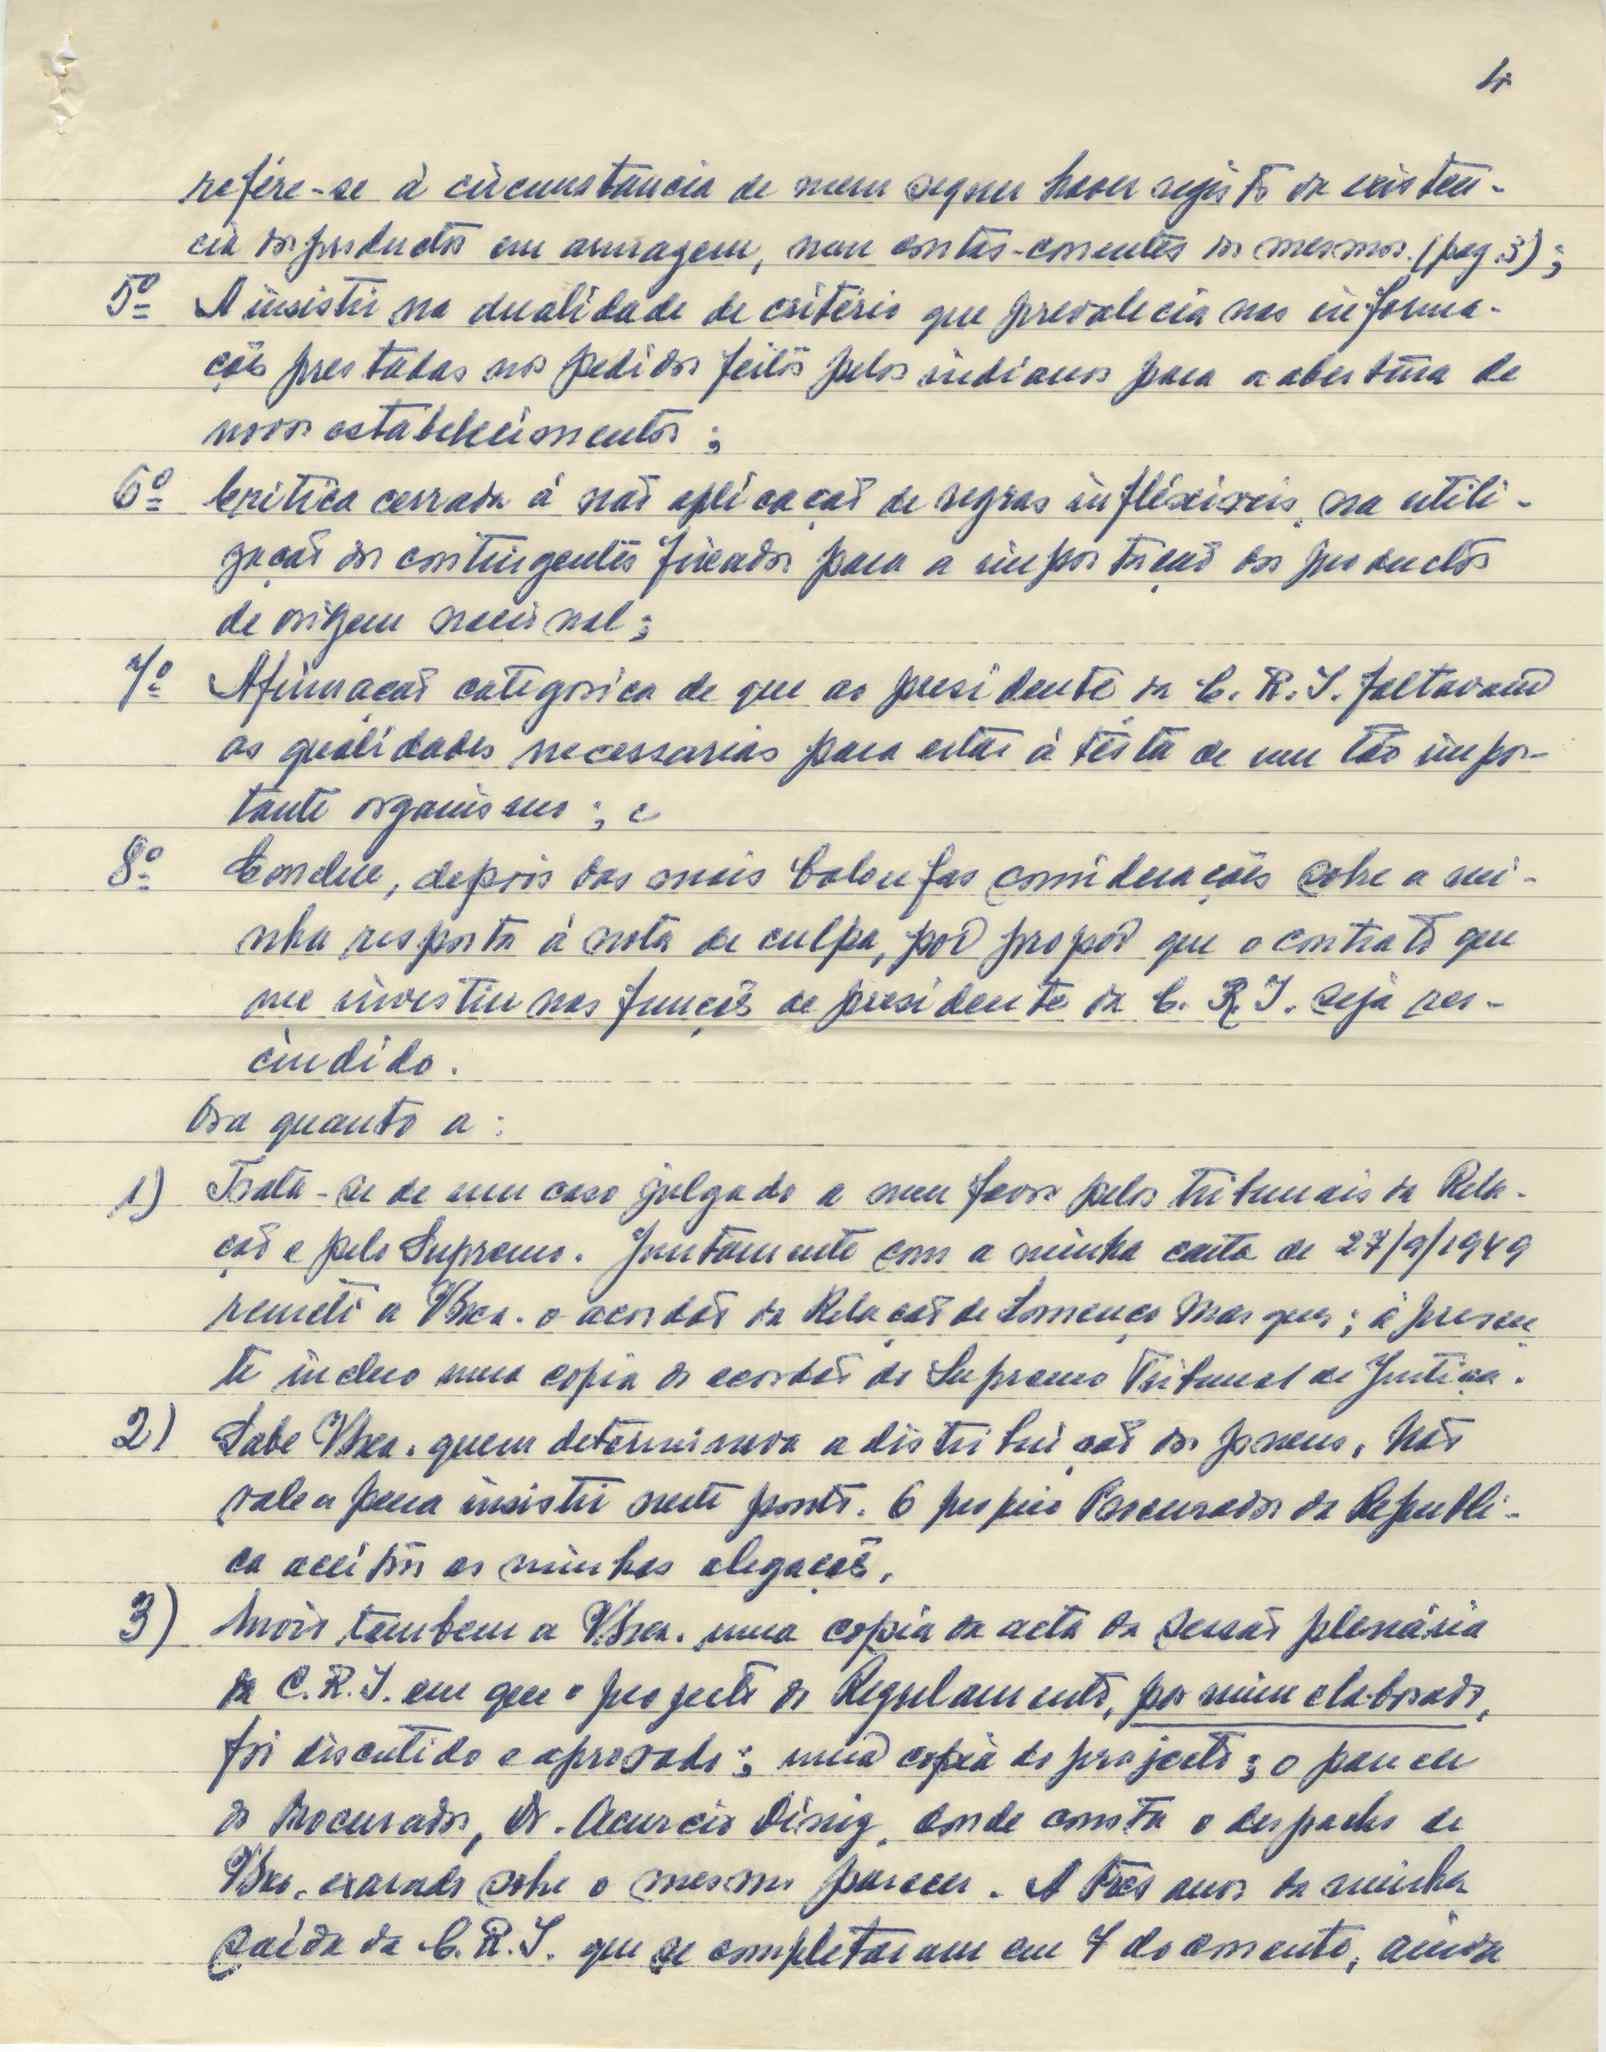 4
refére-se á circunstancia de nem sequer haver registo da existen-
cia dos productos em armagem, nem contas-correntes dos mesmos. (pag. 3);
5º A insistir na dualidade de critério que prevalecia nas informa-
ções prestadas nos pedidos feitos pelos indianos para a abertura de
novos estabelecimentos;
6º Critica cerrada á não aplicação de regras infléxiveis, na utili-
zação dos contingentes fixados para a importação dos productos
de origem nacional;
7º Afirmação categorica de que ao presidente da C. R. I. faltavam
as qualidades necessarias para estar á tésta de um tão impor-
tante organismo; e
8º Conclue, depois das mais balôufas considerações sobre a mi-
nha resposta á nota de culpa, por propôr que o contrato que
me investiu nas funções de presidente da C. R. I. seja res-
cindido.
Ora quanto a:
1) Trata-se de um caso julgado a meu favor pelos tribunais da Rela-
ção e pelo Supremo. Juntamente com a minha carta de 27/9/1949
remeti a VExa. o acordão da Relação de Lourenço Marques; á presen
te incluo uma copia do acordão do Supremo Tribunal de Justiça.
2) Sabe VExa. quem determinava a distribuição dos pneus. Não
vale a pena insistir neste ponto. O proprio Procurador da Republi-
ca aceitou as minhas alegações.
3) Envio tambem a VExa. uma copia da acta da sessão plenária
da C. R. I. em que o projecto do Regulamento, por mim elaborado,
foi discutido e aprovado; uma copia do projecto; o parecer
do Procurador, Dr. Acurcio Diniz, donde consta o despacho de
VExa. exarado sobre o mesmo parecer. A três anos da minha
saída da C. R. I. que se completaram em 7 do corrente, ainda